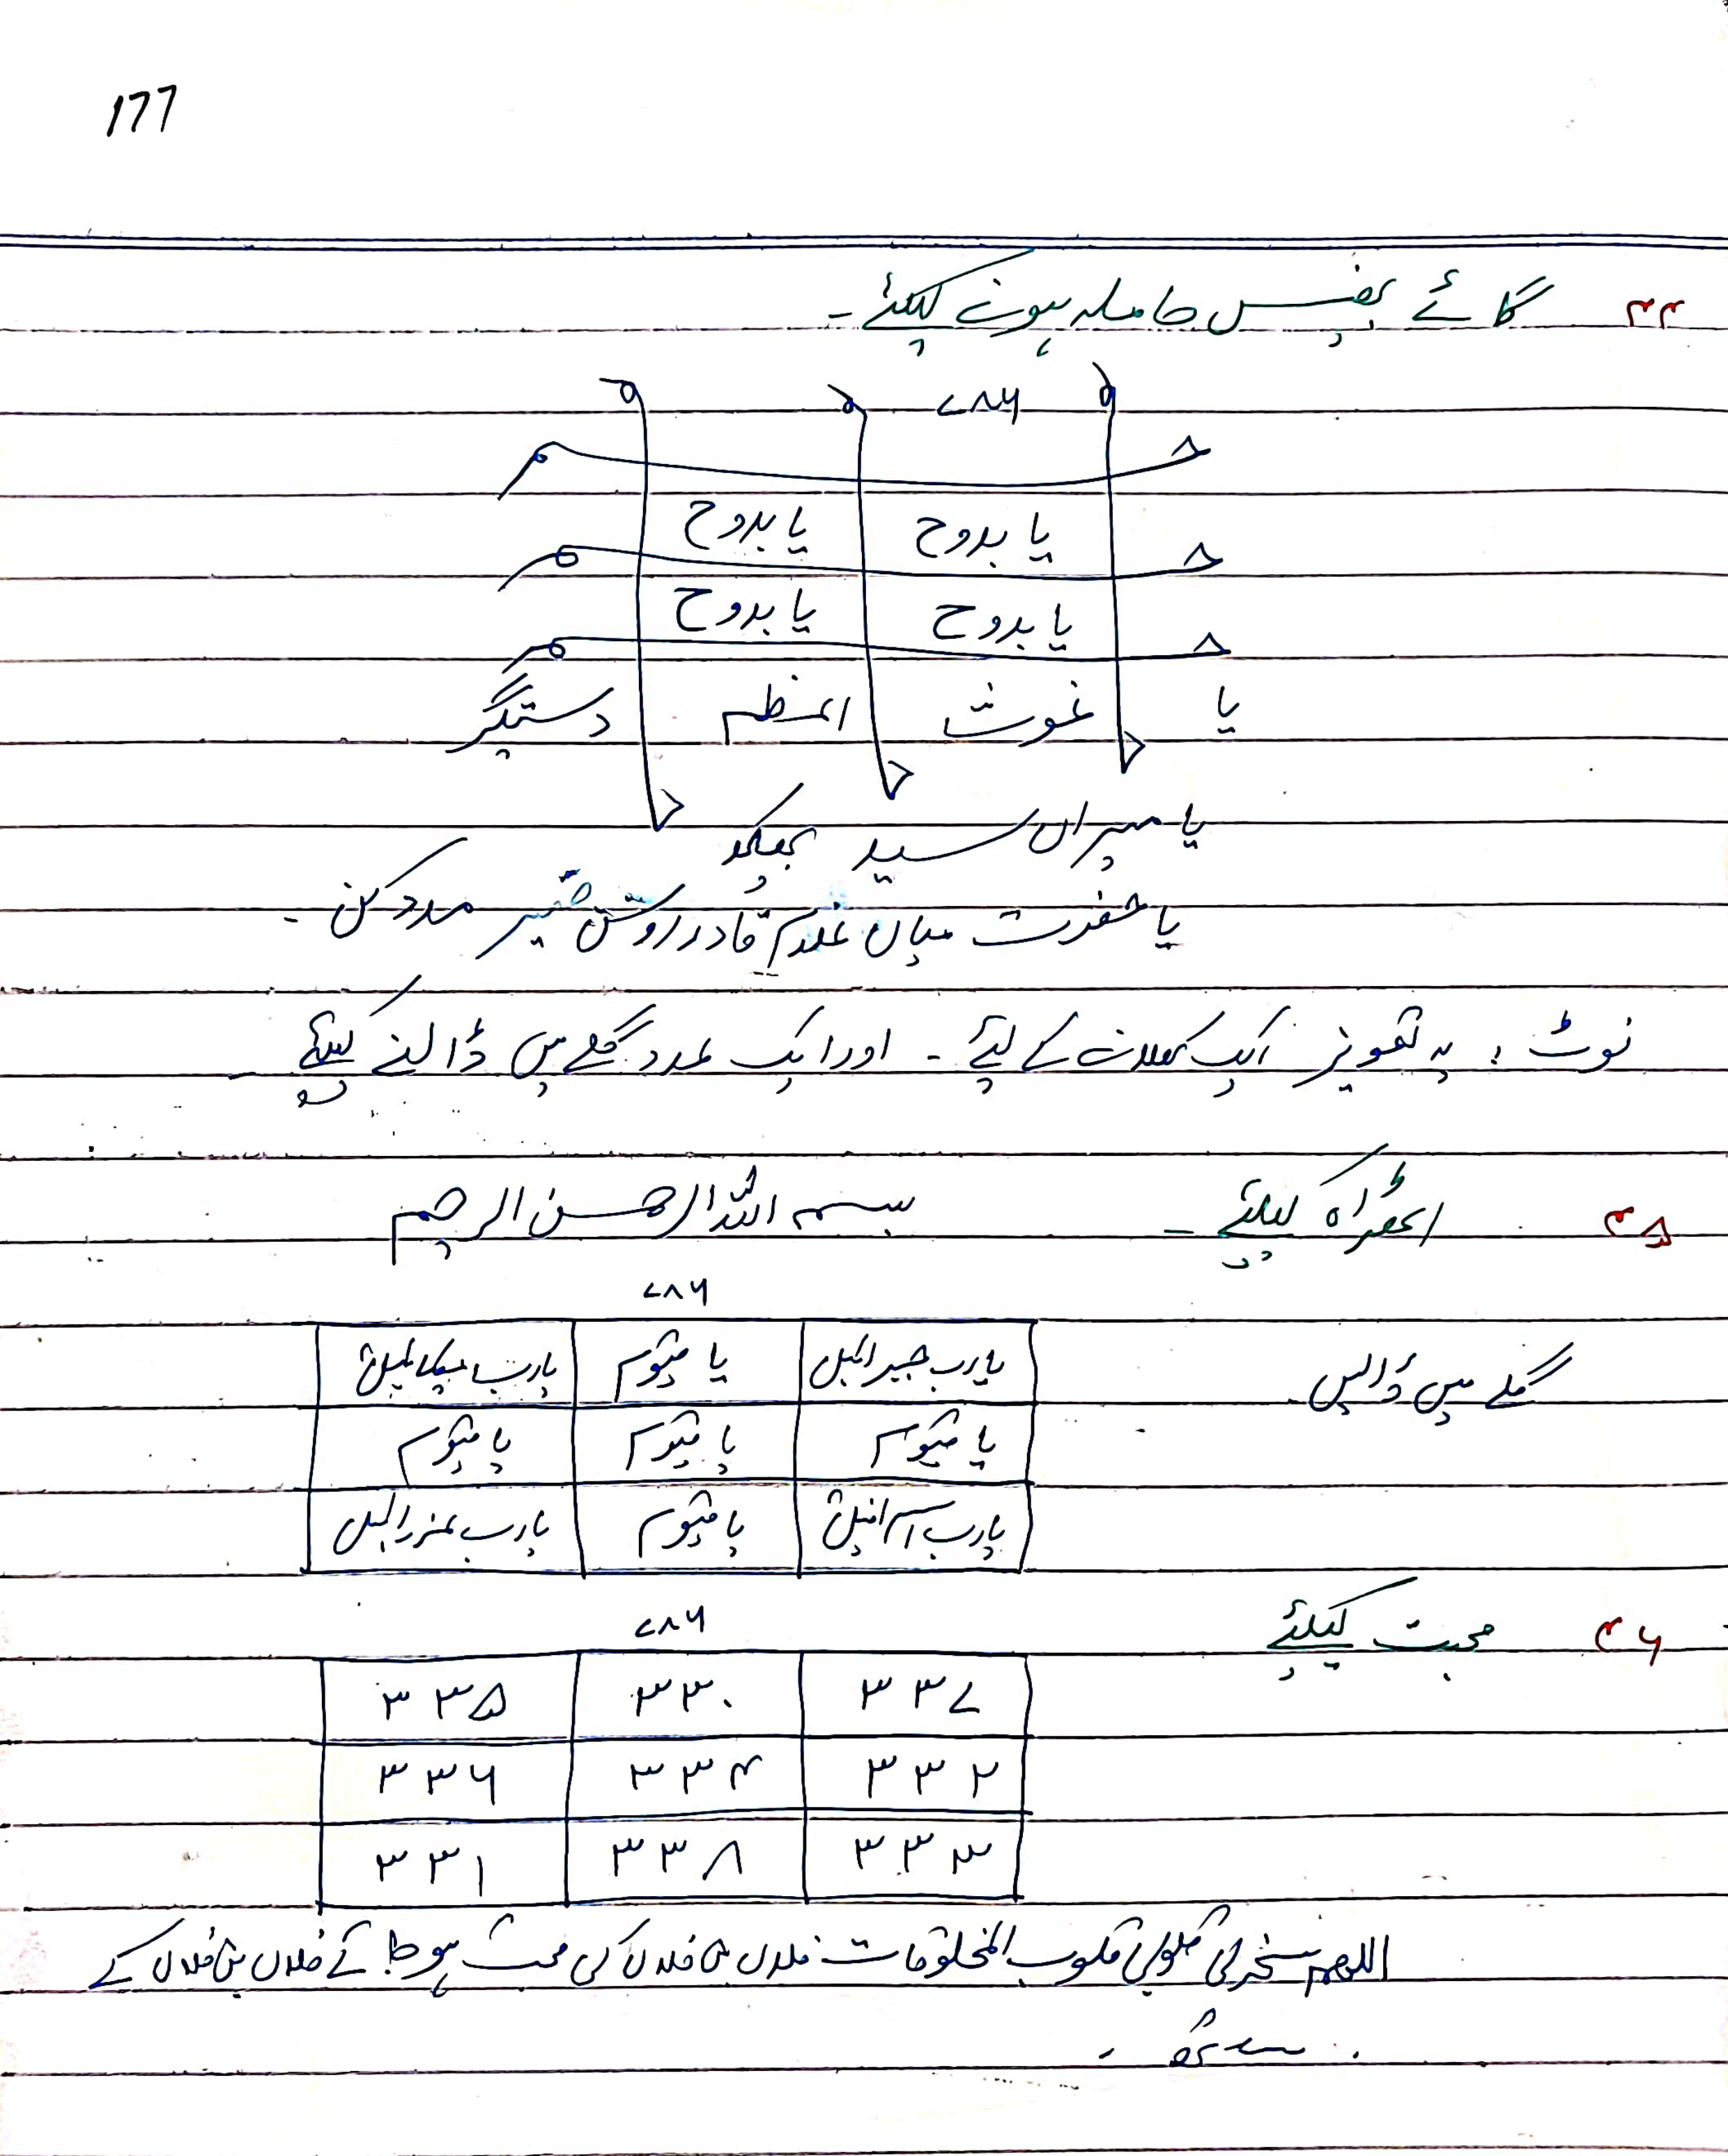 177
۴۴ گائے بھینس حاملہ ہونے کیلئے۔
۷۸۶
یا بدوح یا بدوح
یا بدوح یا بدوح
یا غوث اعظم دستگیر
یا میراں سید بھیکھ
یا حضرت میاں غلام قادر روشن ضمیر مدد کن۔
نوٹ: یہ تعویز ایک کھلانے کے لئے۔ اور ایک عدد گلے میں ڈالنے کیلئے
۴۵ اٹھراہ کیلئے۔ بسم اللہ الرحمن الرحیم
۷۸۶
گلے میں ڈالیں
یا رب جبرائیل یا قیوم یا رب میکائیل
یا قیوم یا قیوم یا قیوم
یا رب اسرافیل یا قیوم یا رب عزرائیل
۴۶ محبت کیلئے
۷۸۶
۳۳۷ ۳۳۰ ۳۳۵
۳۳۲ ۳۳۴ ۳۳۶
۳۳۳ ۳۳۸ ۳۳۱
اللھم سخرلی قلوب المخلوقات فلاں بن فلاں کی محبت ہو جائے فلاں بن فلاں کے
ساتھ۔